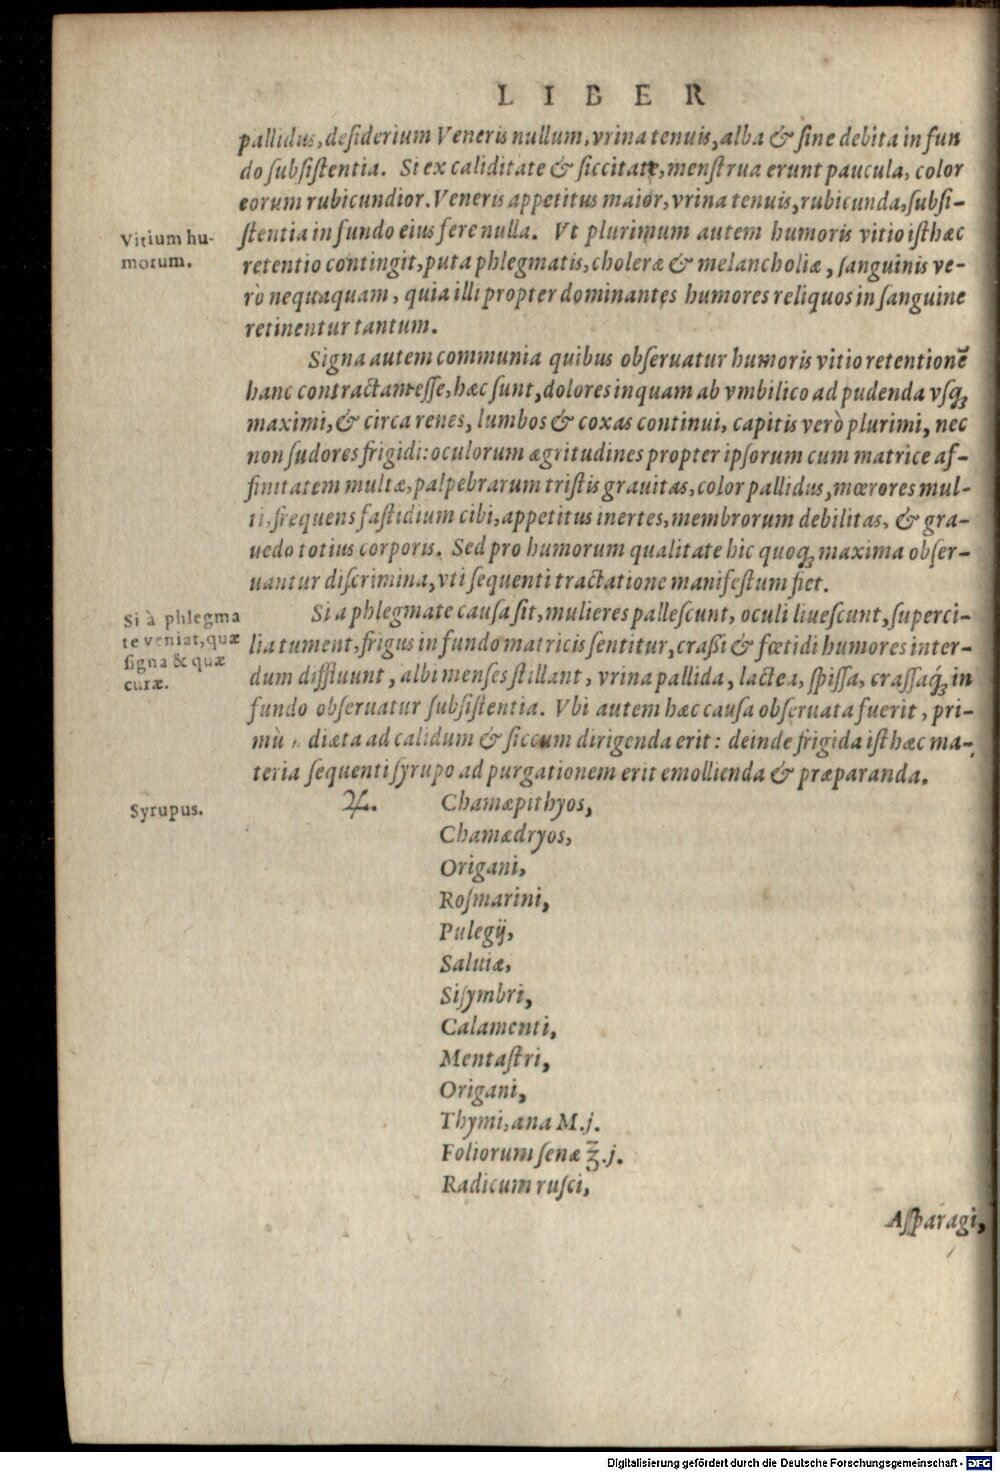 LIBER
pallidus, deſiderium Veneris nullum, vrina tenuis, alba & ſine debita in fun
do ſubſiſtentia. Si ex caliditate & ſiccitate, menſtrua erunt paucula, color
eorum rubicundior. Veneris appetitus maior, vrina tenuis, rubicunda, ſubſi-
ſtentia in fundo eius fere nulla. Vt plurimum autem humoris vitio iſthæc
Vitium hu-
morum.
retentio contingit, puta phlegmatis, choleræ & melancholiæ, ſanguinis ve-
rò nequaquam, quia illi propter dominantes humores reliquos in ſanguine
retinentur tantum.
Signa autem communia quibus obſeruatur humoris vitio retentionē
hanc contractam eſſe, hæc ſunt, dolores inquam ab vmbilico ad pudenda vſq́ꝫ
maximi, & circa renes, lumbos & coxas continui, capitis verò plurimi, nec
non ſudores frigidi: oculorum ægritudines propter ipſorum cum matrice af-
finitatem multæ, palpebrarum triſtis grauitas, color pallidus, mœrores mul-
ti, frequens faſtidium cibi, appetitus inertes, membrorum debilitas, & gra-
uedo totius corporis. Sed pro humorum qualitate hic quoqꝫ maxima obſer-
uantur diſcrimina, vti ſequenti tractatione manifeſtum fiet.
Si à phlegma
te veniat, quæ
ſigna & quæ
curæ.
Si a phlegmate cauſa ſit, mulieres palleſcunt, oculi liueſcunt, ſuperci-
lia tument, frigus in fundo matricis ſentitur, craßi & fœtidi humores inter-
dum diffluunt, albi menſes ſtillant, vrina pallida, lactea, ſpiſſa, craſſaq́ꝫ in
fundo obſeruatur ſubſiſtentia. Vbi autem hæc cauſa obſeruata fuerit, pri-
mū diæta ad calidum & ſiccum dirigenda erit: deinde frigida iſthæc ma-
teria ſequenti ſyrupo ad purgationem erit emollienda & præparanda.
Syrupus.
♃. Chamæpithyos,
Chamædryos,
Origani,
Roſmarini,
Pulegij,
Saluiæ,
Siſymbri,
Calamenti,
Mentaſtri,
Origani,
Thymi, ana M.j.
Foliorum ſenæ ℥.j.
Radicum ruſci,
Aſparagi,
Digitalisierung gefördert durch die Deutsche Forschungsgemeinschaft - DFG